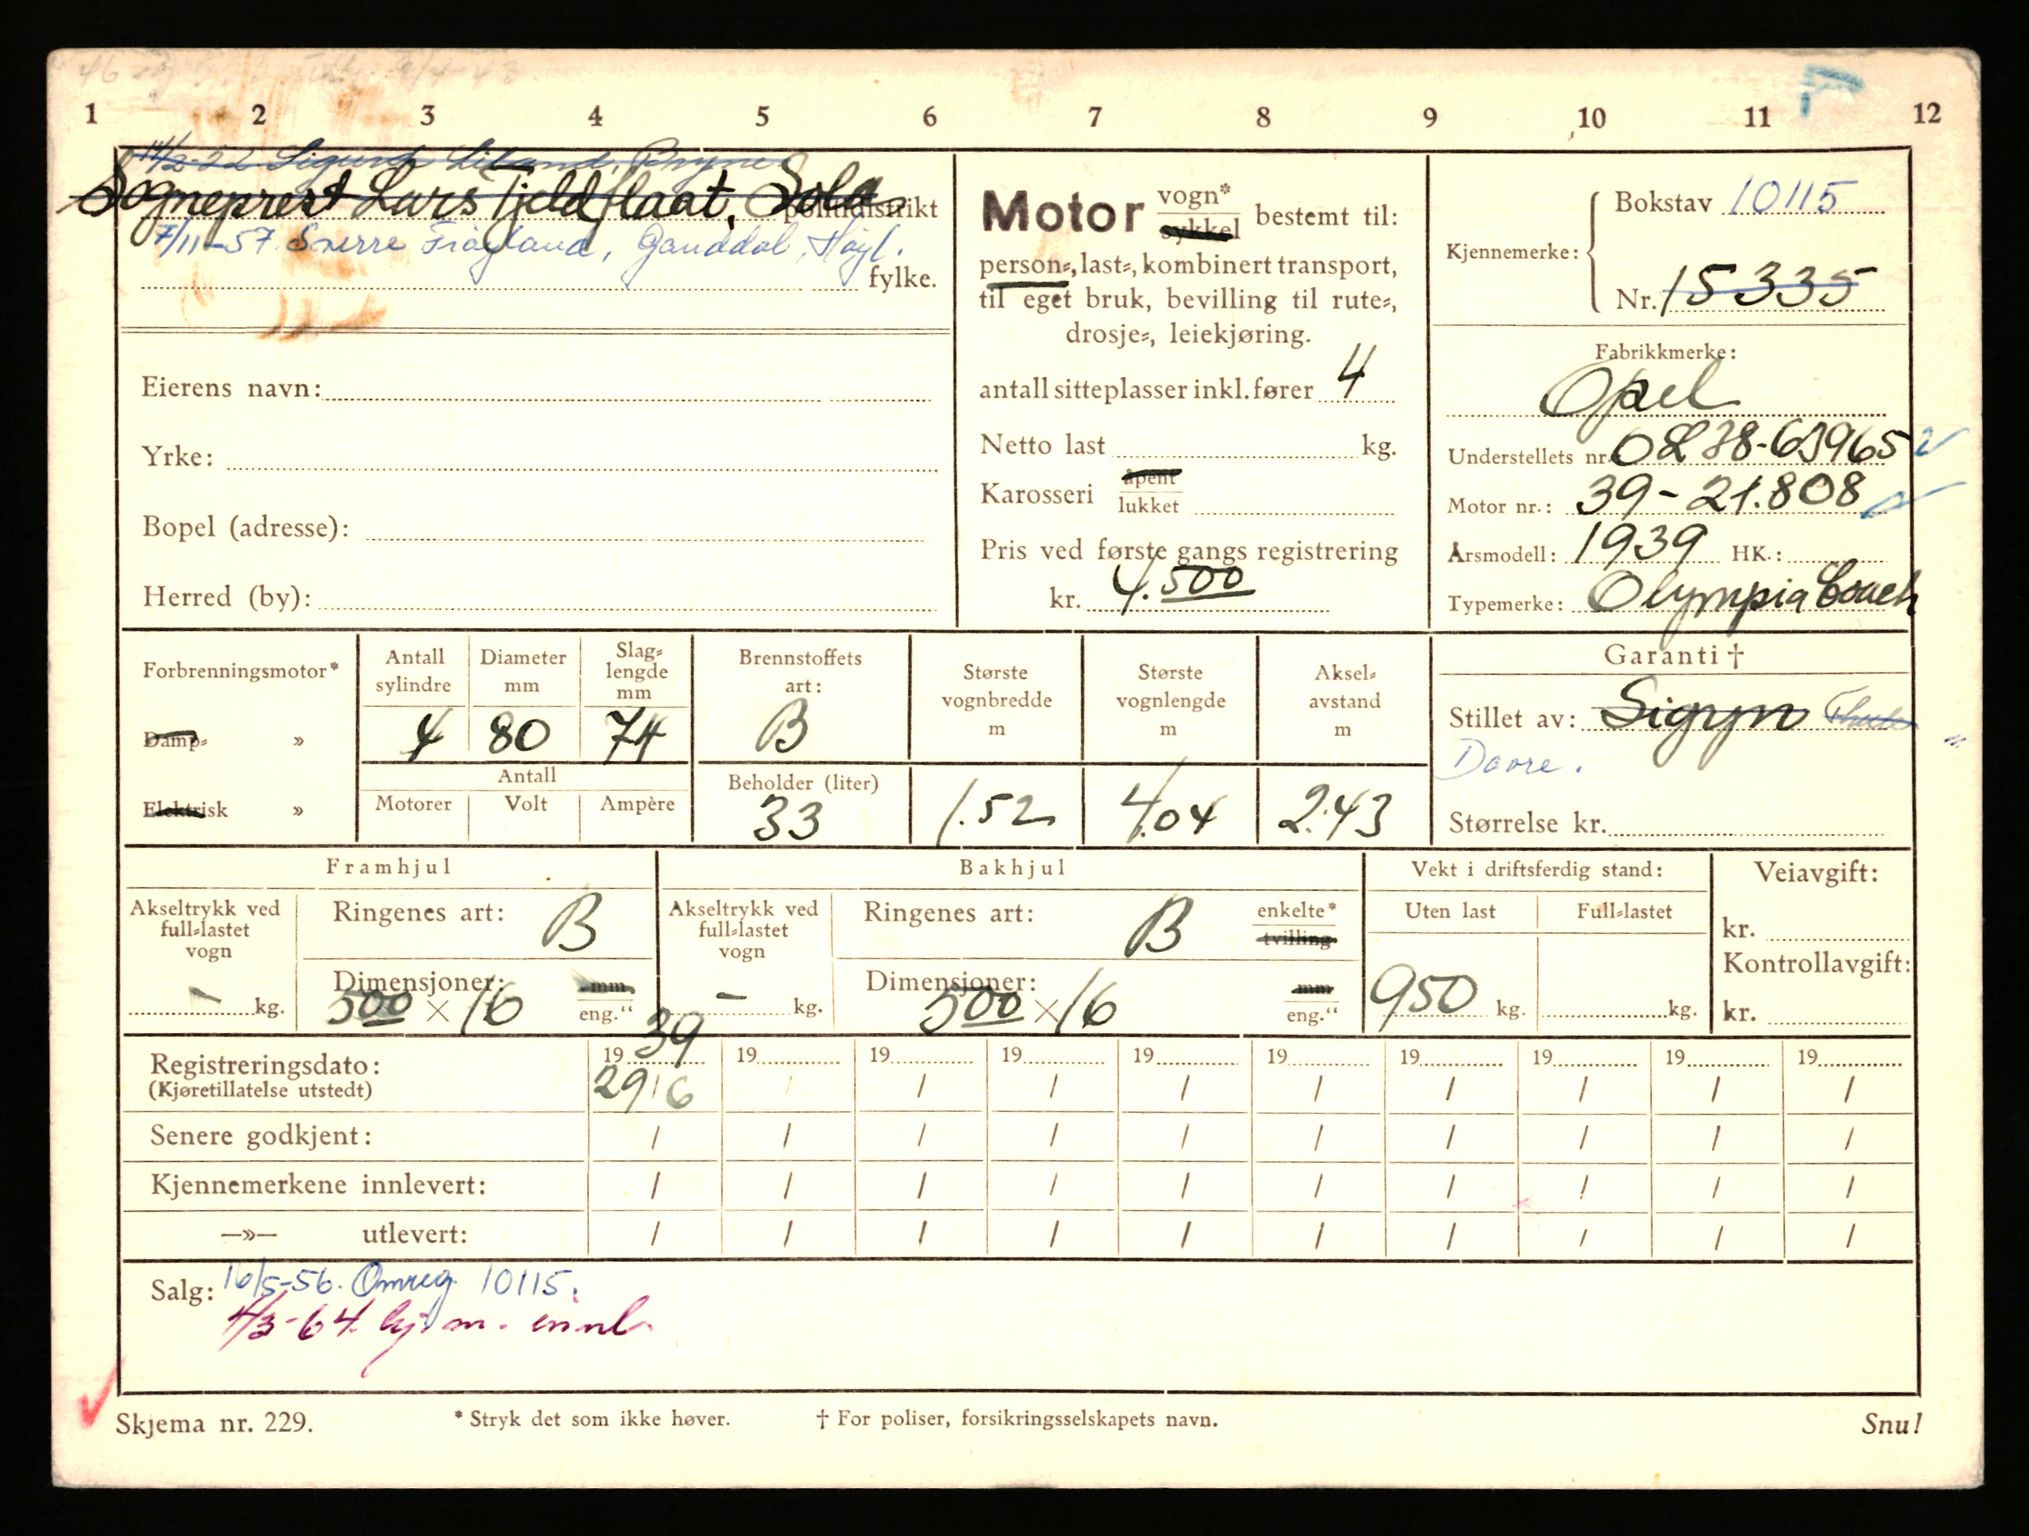 1 2 3 4 5 6 7 8 9 10 11 12
14/2-52 Sigurd Litland, Bryne
Sogneprest Lars Tjeldflaat, Sola
politidistrikt
7/11-57. Sverre Frøyland, Ganddal, Høyl.
fylke.
Eierens navn:
Yrke:
Bopel (adresse):
Herred (by):
Motor vogn* sykkel bestemt til:
person-, last-, kombinert transport,
til eget bruk, bevilling til rute-,
drosje-, leiekjøring.
antall sitteplasser inkl. fører 4
Netto last kg.
Karosseri åpent lukket
Pris ved første gangs registrering
kr. 4.500
Kjennemerke: Bokstav 10115
Nr. 15335
Fabrikkmerke:
Opel
Understellets nr. OL38-63965
Motor nr.: 39-21.808
Årsmodell: 1939 HK.:
Typemerke: Olympia Coach
Forbrenningsmotor*
Damp- »
Elektrisk »
Antall sylindre 4
Diameter mm 80
Slaglengde mm 74
Antall
Motorer Volt Ampère
Brennstoffets art: B
Beholder (liter) 33
Største vognbredde m 1.52
Største vognlengde m 4.04
Aksel-avstand m 2.43
Garanti †
Stillet av: Sigyn
Dovre.
Størrelse kr.
Framhjul
Akseltrykk ved full-lastet vogn - kg.
Ringenes art: B
Dimensjoner: 500 × 16 mm eng."
Bakhjul
Akseltrykk ved full-lastet vogn - kg.
Ringenes art: B enkelte* tvilling
Dimensjoner: 500 × 16 mm eng."
Vekt i driftsferdig stand:
Uten last 950 kg.
Full-lastet kg.
Veiavgift:
kr.
Kontrollavgift:
kr.
Registreringsdato: 19 39 19 19 19 19 19 19 19 19 19
(Kjøretillatelse utstedt) 29/6 / / / / / / / /
Senere godkjent: / / / / / / / / / /
Kjennemerkene innlevert: / / / / / / / / / /
—»— utlevert: / / / / / / / / / /
Salg: 16/5-56. Omreg 10115.
4/3-64. kj. m. innl.
Skjema nr. 229. * Stryk det som ikke høver. † For poliser, forsikringsselskapets navn. Snu!